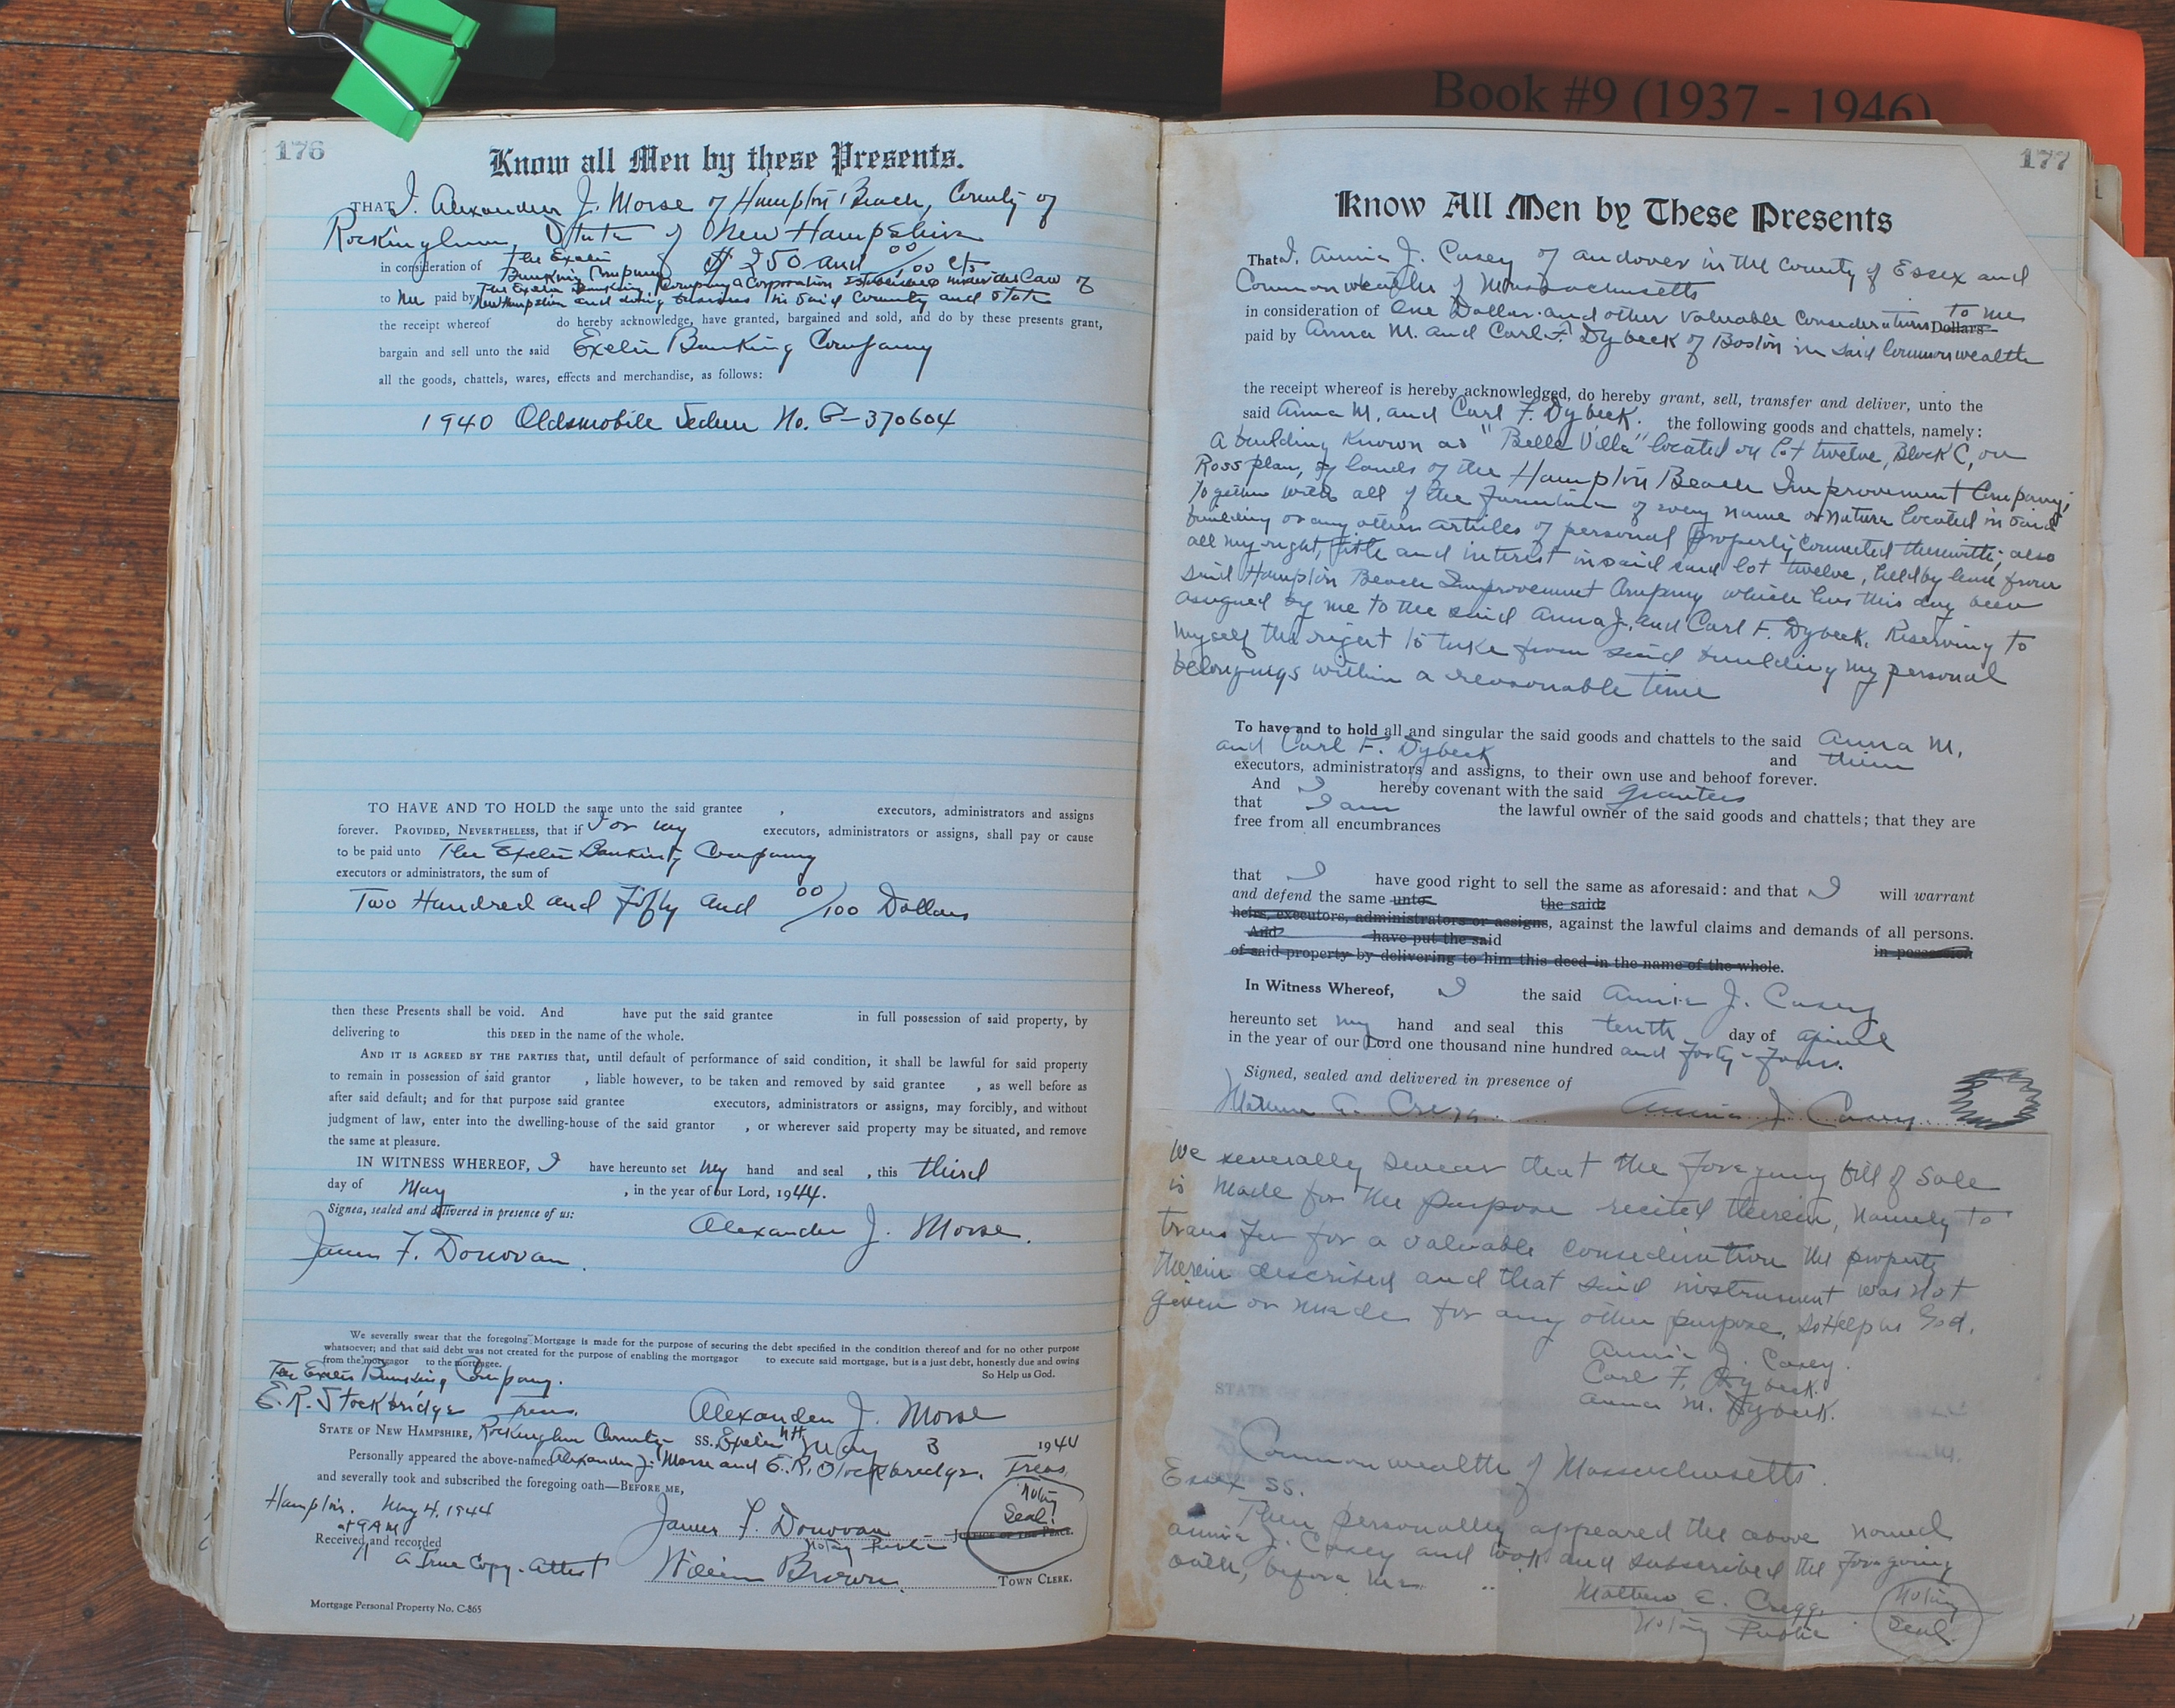 Book #9 (1937 - 1946)
176
Know all Men by these Presents.
THAT I, Alexander J. Morse of Hampton Beach, County of
Rockingham, State of New Hampshire
in consideration of The Exeter Banking Company $250 and 00/00 cts
to me paid by The Exeter Banking Company a Corporation established under the Law of
New Hampshire and doing business in said County and State
the receipt whereof do hereby acknowledge, have granted, bargained and sold, and do by these presents grant,
bargain and sell unto the said Exeter Banking Company
all the goods, chattels, wares, effects and merchandise, as follows:
1940 Oldsmobile Sedan No. G-370604
TO HAVE AND TO HOLD the same unto the said grantee , executors, administrators and assigns
forever. PROVIDED, NEVERTHELESS, that if I or my executors, administrators or assigns, shall pay or cause
to be paid unto The Exeter Banking Company
executors or administrators, the sum of
Two Hundred and Fifty and 00/100 Dollars
then these Presents shall be void. And have put the said grantee in full possession of said property, by
delivering to this DEED in the name of the whole.
AND IT IS AGREED BY THE PARTIES that, until default of performance of said condition, it shall be lawful for said property
to remain in possession of said grantor , liable however, to be taken and removed by said grantee , as well before as
after said default; and for that purpose said grantee executors, administrators or assigns, may forcibly, and without
judgment of law, enter into the dwelling-house of the said grantor , or wherever said property may be situated, and remove
the same at pleasure.
IN WITNESS WHEREOF, I have hereunto set my hand and seal , this third
day of May , in the year of our Lord, 1944.
Signed, sealed and delivered in presence of us:
James F. Donovan. Alexander J. Morse.
We severally swear that the foregoing Mortgage is made for the purpose of securing the debt specified in the condition thereof and for no other purpose
whatsoever; and that said debt was not created for the purpose of enabling the mortgagor to execute said mortgage, but is a just debt, honestly due and owing
from the mortgagor to the mortgagee. So Help us God.
The Exeter Banking Company.
E. R. Stockbridge Treas. Alexander J. Morse
STATE OF NEW HAMPSHIRE, Rockingham County SS. Exeter NH May 3 1944
Personally appeared the above-named Alexander J. Morse and E. R. Stockbridge, Treas.
and severally took and subscribed the foregoing oath—BEFORE ME,
Hampton. May 4, 1944
at 9 AM
Received and recorded
James F. Donovan JUSTICE OF THE PEACE.
Notary Public
Notary Seal
A True Copy. Attest William Brown. TOWN CLERK.
Mortgage Personal Property No. C-865
177
Know All Men by These Presents
That I, Annie J. Casey of Andover in the County of Essex and
Commonwealth of Massachusetts
in consideration of One Dollar and other valuable considerations Dollars to me
paid by Anna M. and Carl F. Dybeck of Boston in said Commonwealth
the receipt whereof is hereby acknowledged, do hereby grant, sell, transfer and deliver, unto the
said Anna M. and Carl F. Dybeck. the following goods and chattels, namely:
A building known as "Belle Villa" located on Lot twelve, Block C, on
Ross plan, of lands of the Hampton Beach Improvement Company;
Together with all of the furniture of every name or nature located in said
building or any other articles of personal property connected therewith; also
all my right, title and interest in said land lot twelve, held by lease from
said Hampton Beach Improvement Company which has this day been
assigned by me to the said Anna J. and Carl F. Dybeck. Reserving to
myself the right to take from said building my personal
belongings within a reasonable time
To have and to hold all and singular the said goods and chattels to the said Anna M.
and Carl F. Dybeck and their
executors, administrators and assigns, to their own use and behoof forever.
And I hereby covenant with the said grantees
that I am the lawful owner of the said goods and chattels; that they are
free from all encumbrances
that I have good right to sell the same as aforesaid: and that I will warrant
and defend the same unto the said
heirs, executors, administrators or assigns, against the lawful claims and demands of all persons.
And have put the said in possession
of said property by delivering to him this deed in the name of the whole.
In Witness Whereof, I the said Annie J. Casey
hereunto set my hand and seal this tenth day of April
in the year of our Lord one thousand nine hundred and forty-four.
Signed, sealed and delivered in presence of
Mathew E. Cregg. Annie J. Casey.
We severally swear that the foregoing bill of sale
is made for the purpose recited therein, namely to
transfer for a valuable consideration the property
therein described and that said instrument was not
given or made for any other purpose. So Help us God.
Annie J. Casey.
Carl F. Dybeck.
Anna M. Dybeck.
Commonwealth of Massachusetts.
Essex SS.
Then personally appeared the above named
Annie J. Casey and took and subscribed the foregoing
oath, before me
Mathew E. Cregg.
Notary Public
Notary Seal